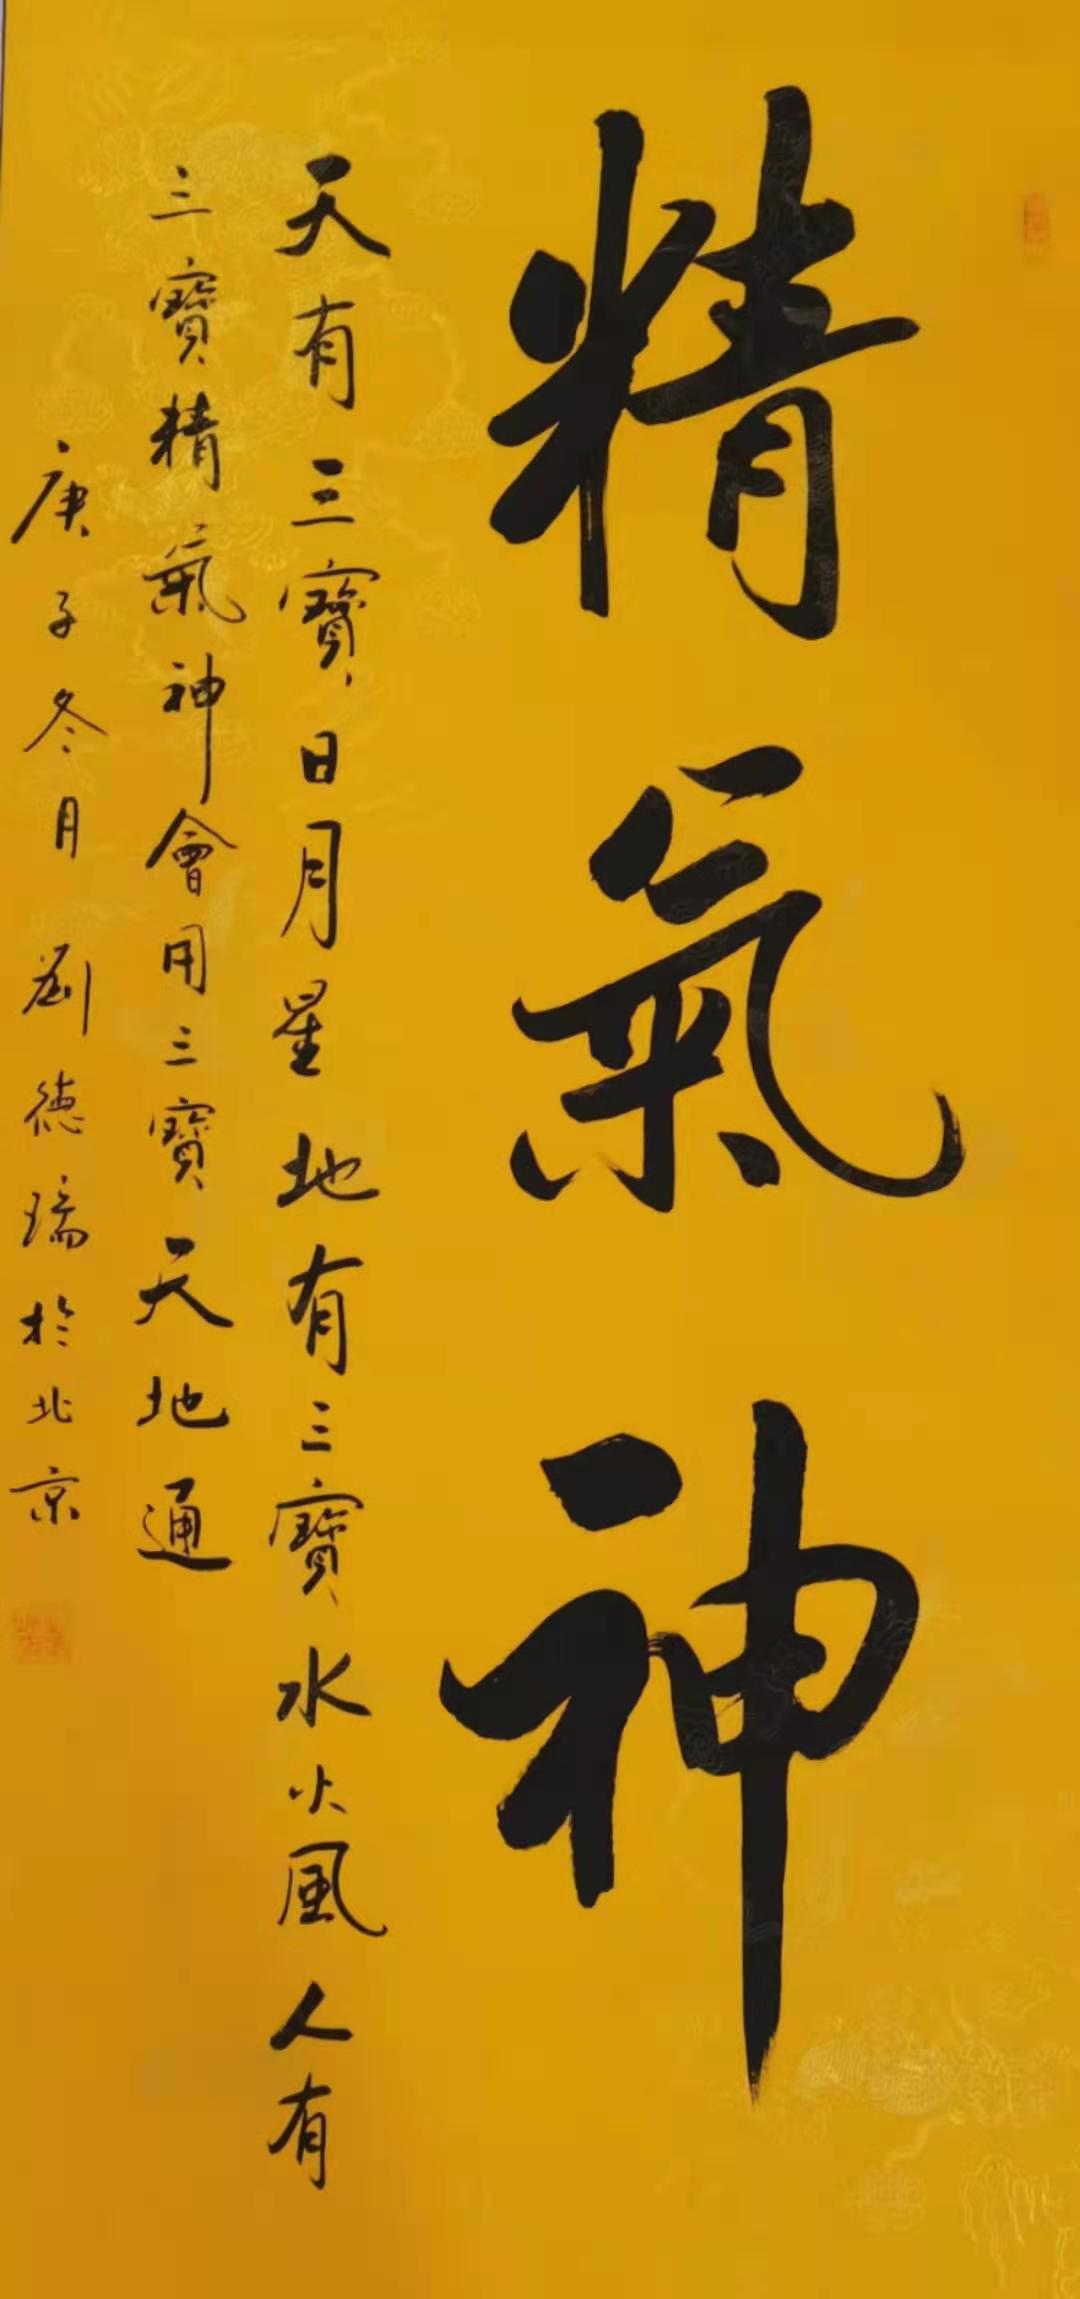 精氣神
天有三寶日月星地有三寶水火風人有
三寶精氣神會用三寶天地通
庚子冬月劉德瑞於北京